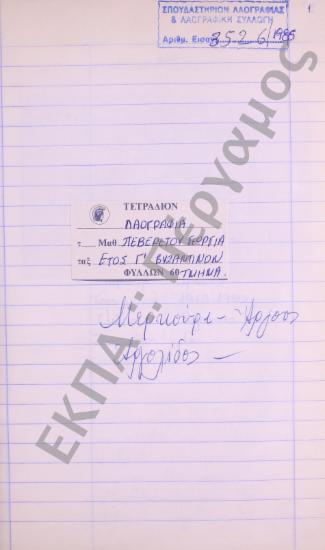 1
ΣΠΟΥΔΑΣΤΗΡΙΟΝ ΛΑΟΓΡΑΦΙΑΣ
& ΛΑΟΓΡΑΦΙΚΗ ΣΥΛΛΟΓΗ
Αριθμ. Εισαγ. 3526/1985
ΤΕΤΡΑΔΙΟΝ
ΛΑΟΓΡΑΦΙΑ
τ Μαθ ΠΕΒΕΡΕΤΟΥ ΓΕΩΡΓΙΑ
ταξ ΕΤΟΣ Γ' ΒΥΖΑΝΤΙΝΟΝ
ΦΥΛΛΩΝ 60 ΤΜΗΜΑ.
Μερκούρι - Άργους
Αργολίδος -
ΕΚΠΑ :: Πέργαμος